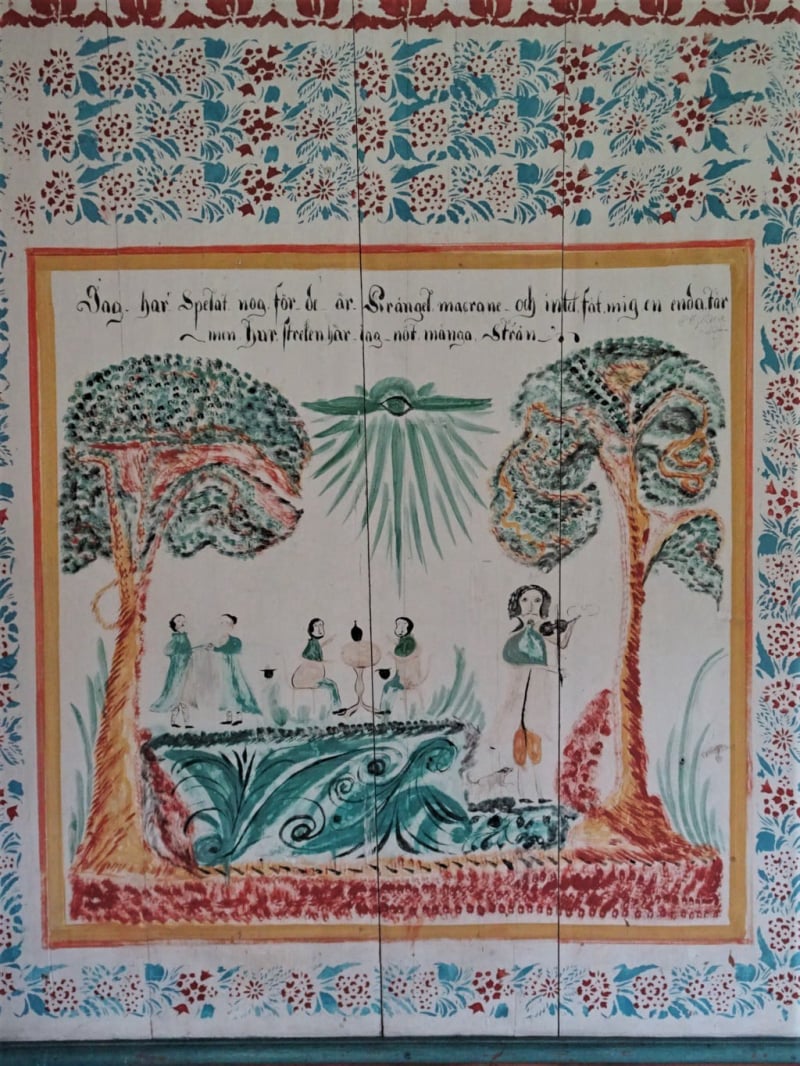 Jag har Spelat nog för de är Krångel macrane och intet fåt mig en enda tår
men hur strefen har iag nöt många Strån